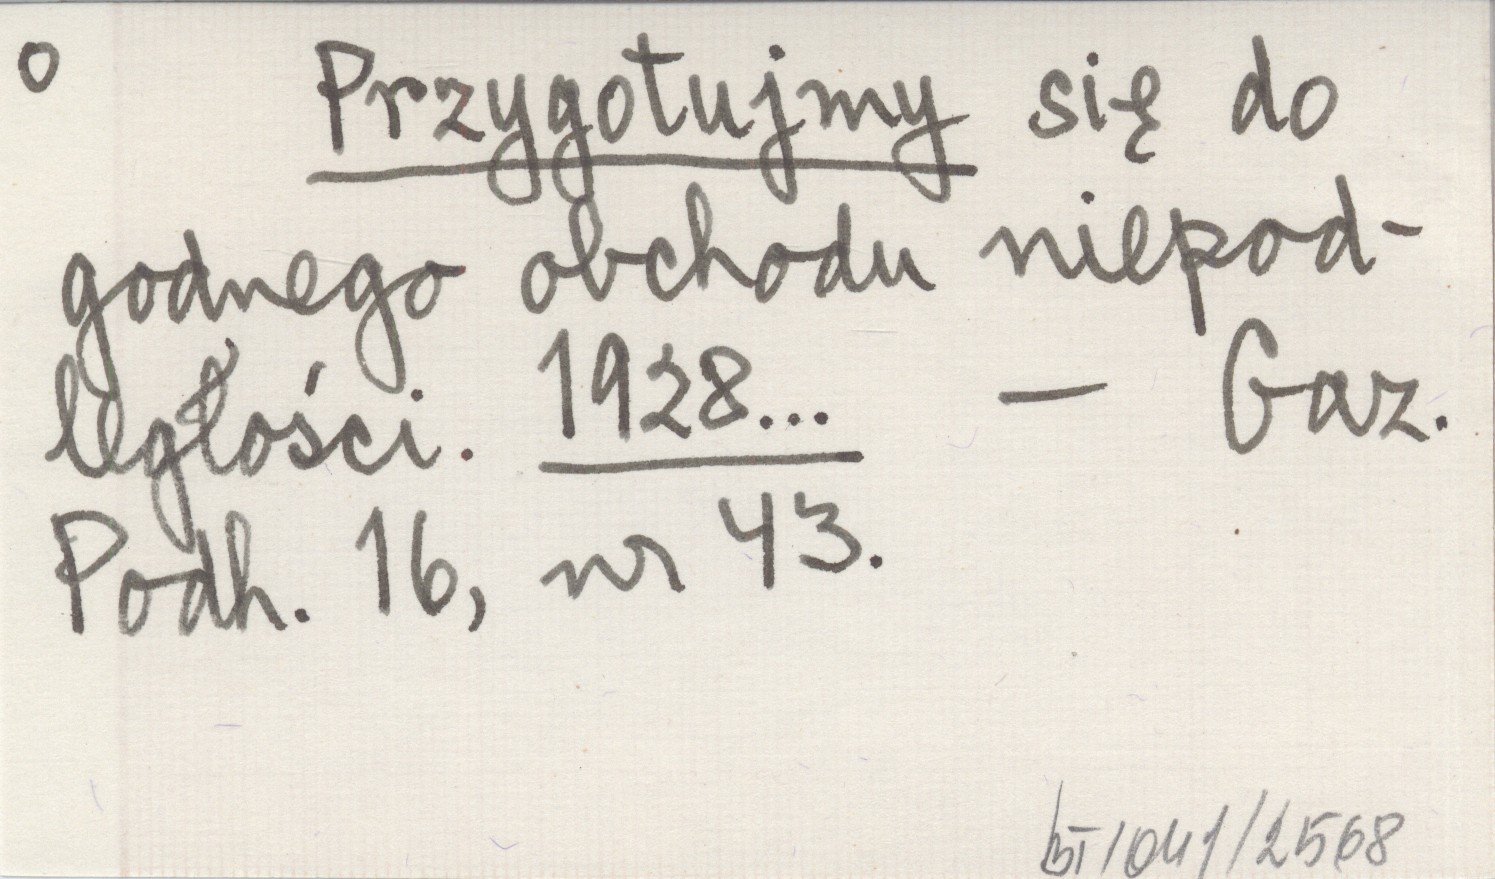 o Przygotujmy się do
godnego obchodu niepod-
ległości. 1928... — Gaz.
Podh. 16, nr 43.
bT/041/2568